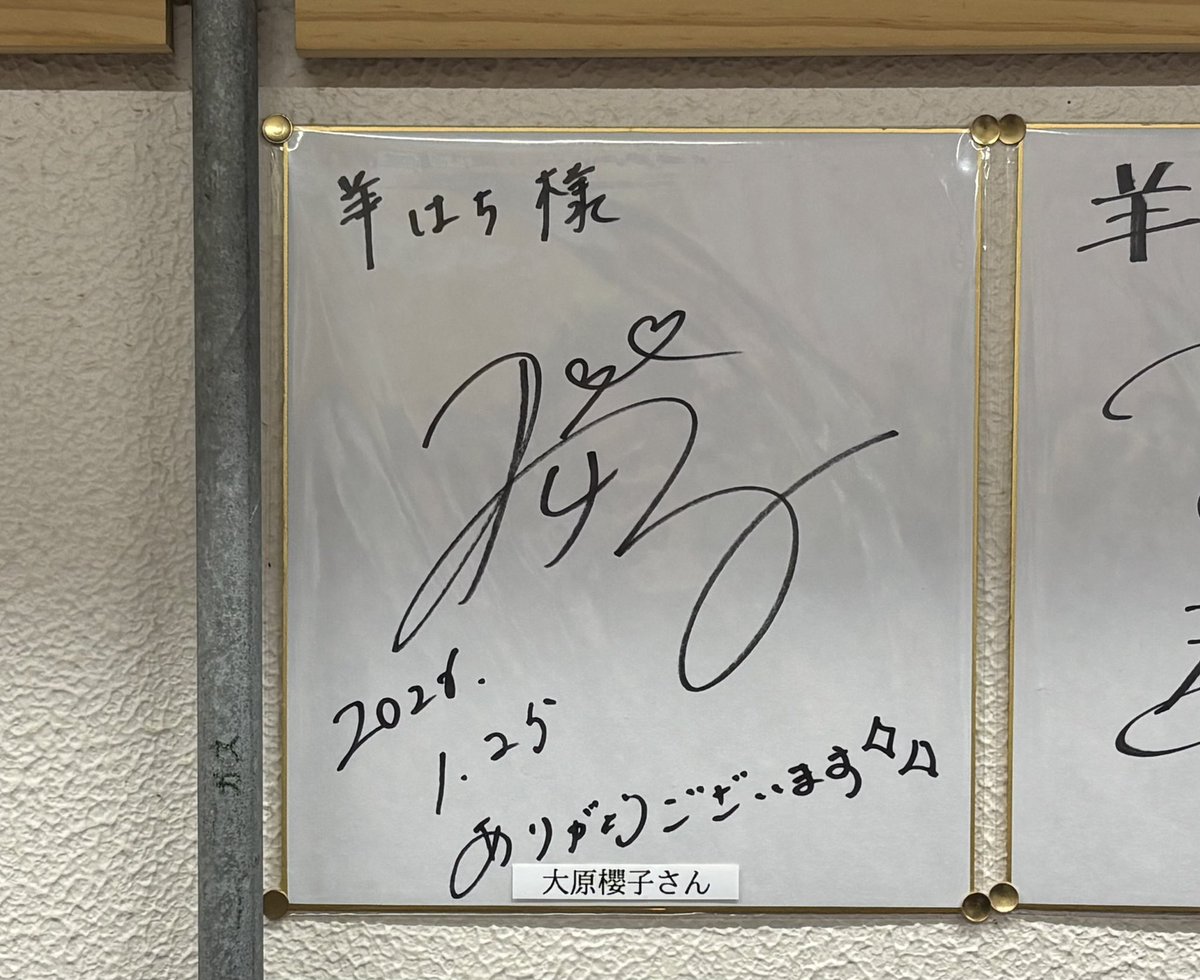 羊はち様
2026.
1.25
ありがとうございます
大原櫻子さん
羊
ガス